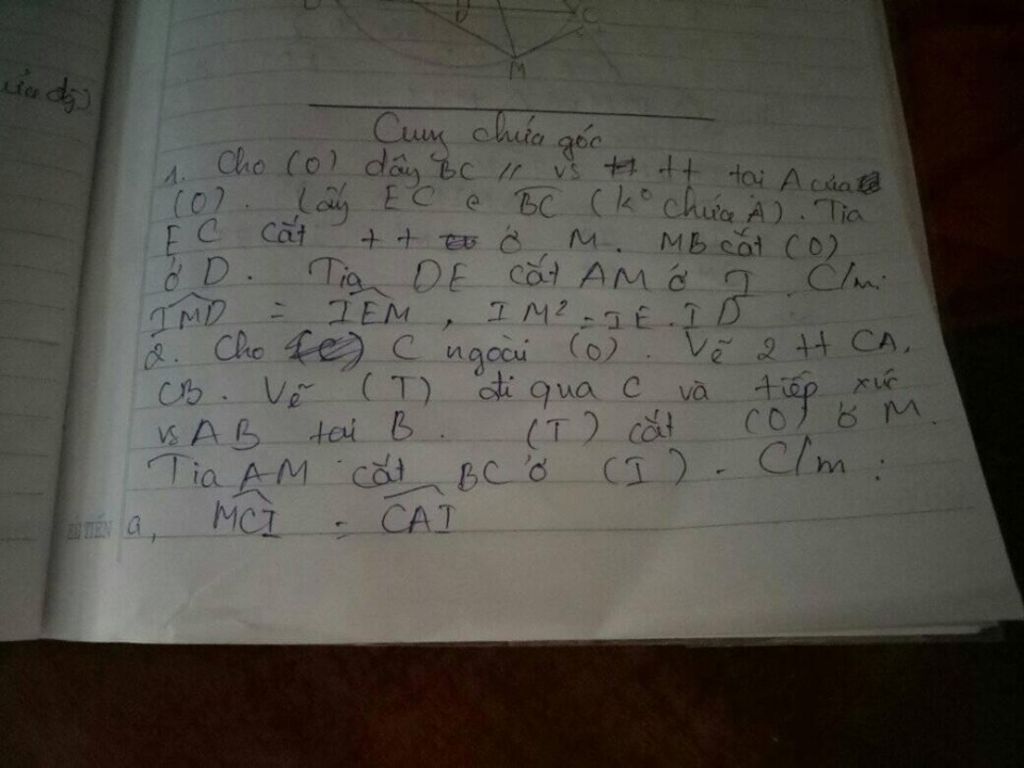 D C
M
của dg)
Cung chứa góc
1. Cho (O) dây BC // vs tt tại A của
(O). Lấy EC e BC (k° chứa A). Tia
EC cắt tt ở M. MB cắt (O)
ở D. Tia DE cắt AM ở I. C/m:
IMD = IEM, IM² = IE.ID
2. Cho C ngoài (O). Vẽ 2 tt CA,
CB. Vẽ (T) đi qua C và tiếp xúc
vs AB tại B. (T) cắt (O) ở M.
Tia AM cắt BC ở (I). C/m:
a, MCI = CAI